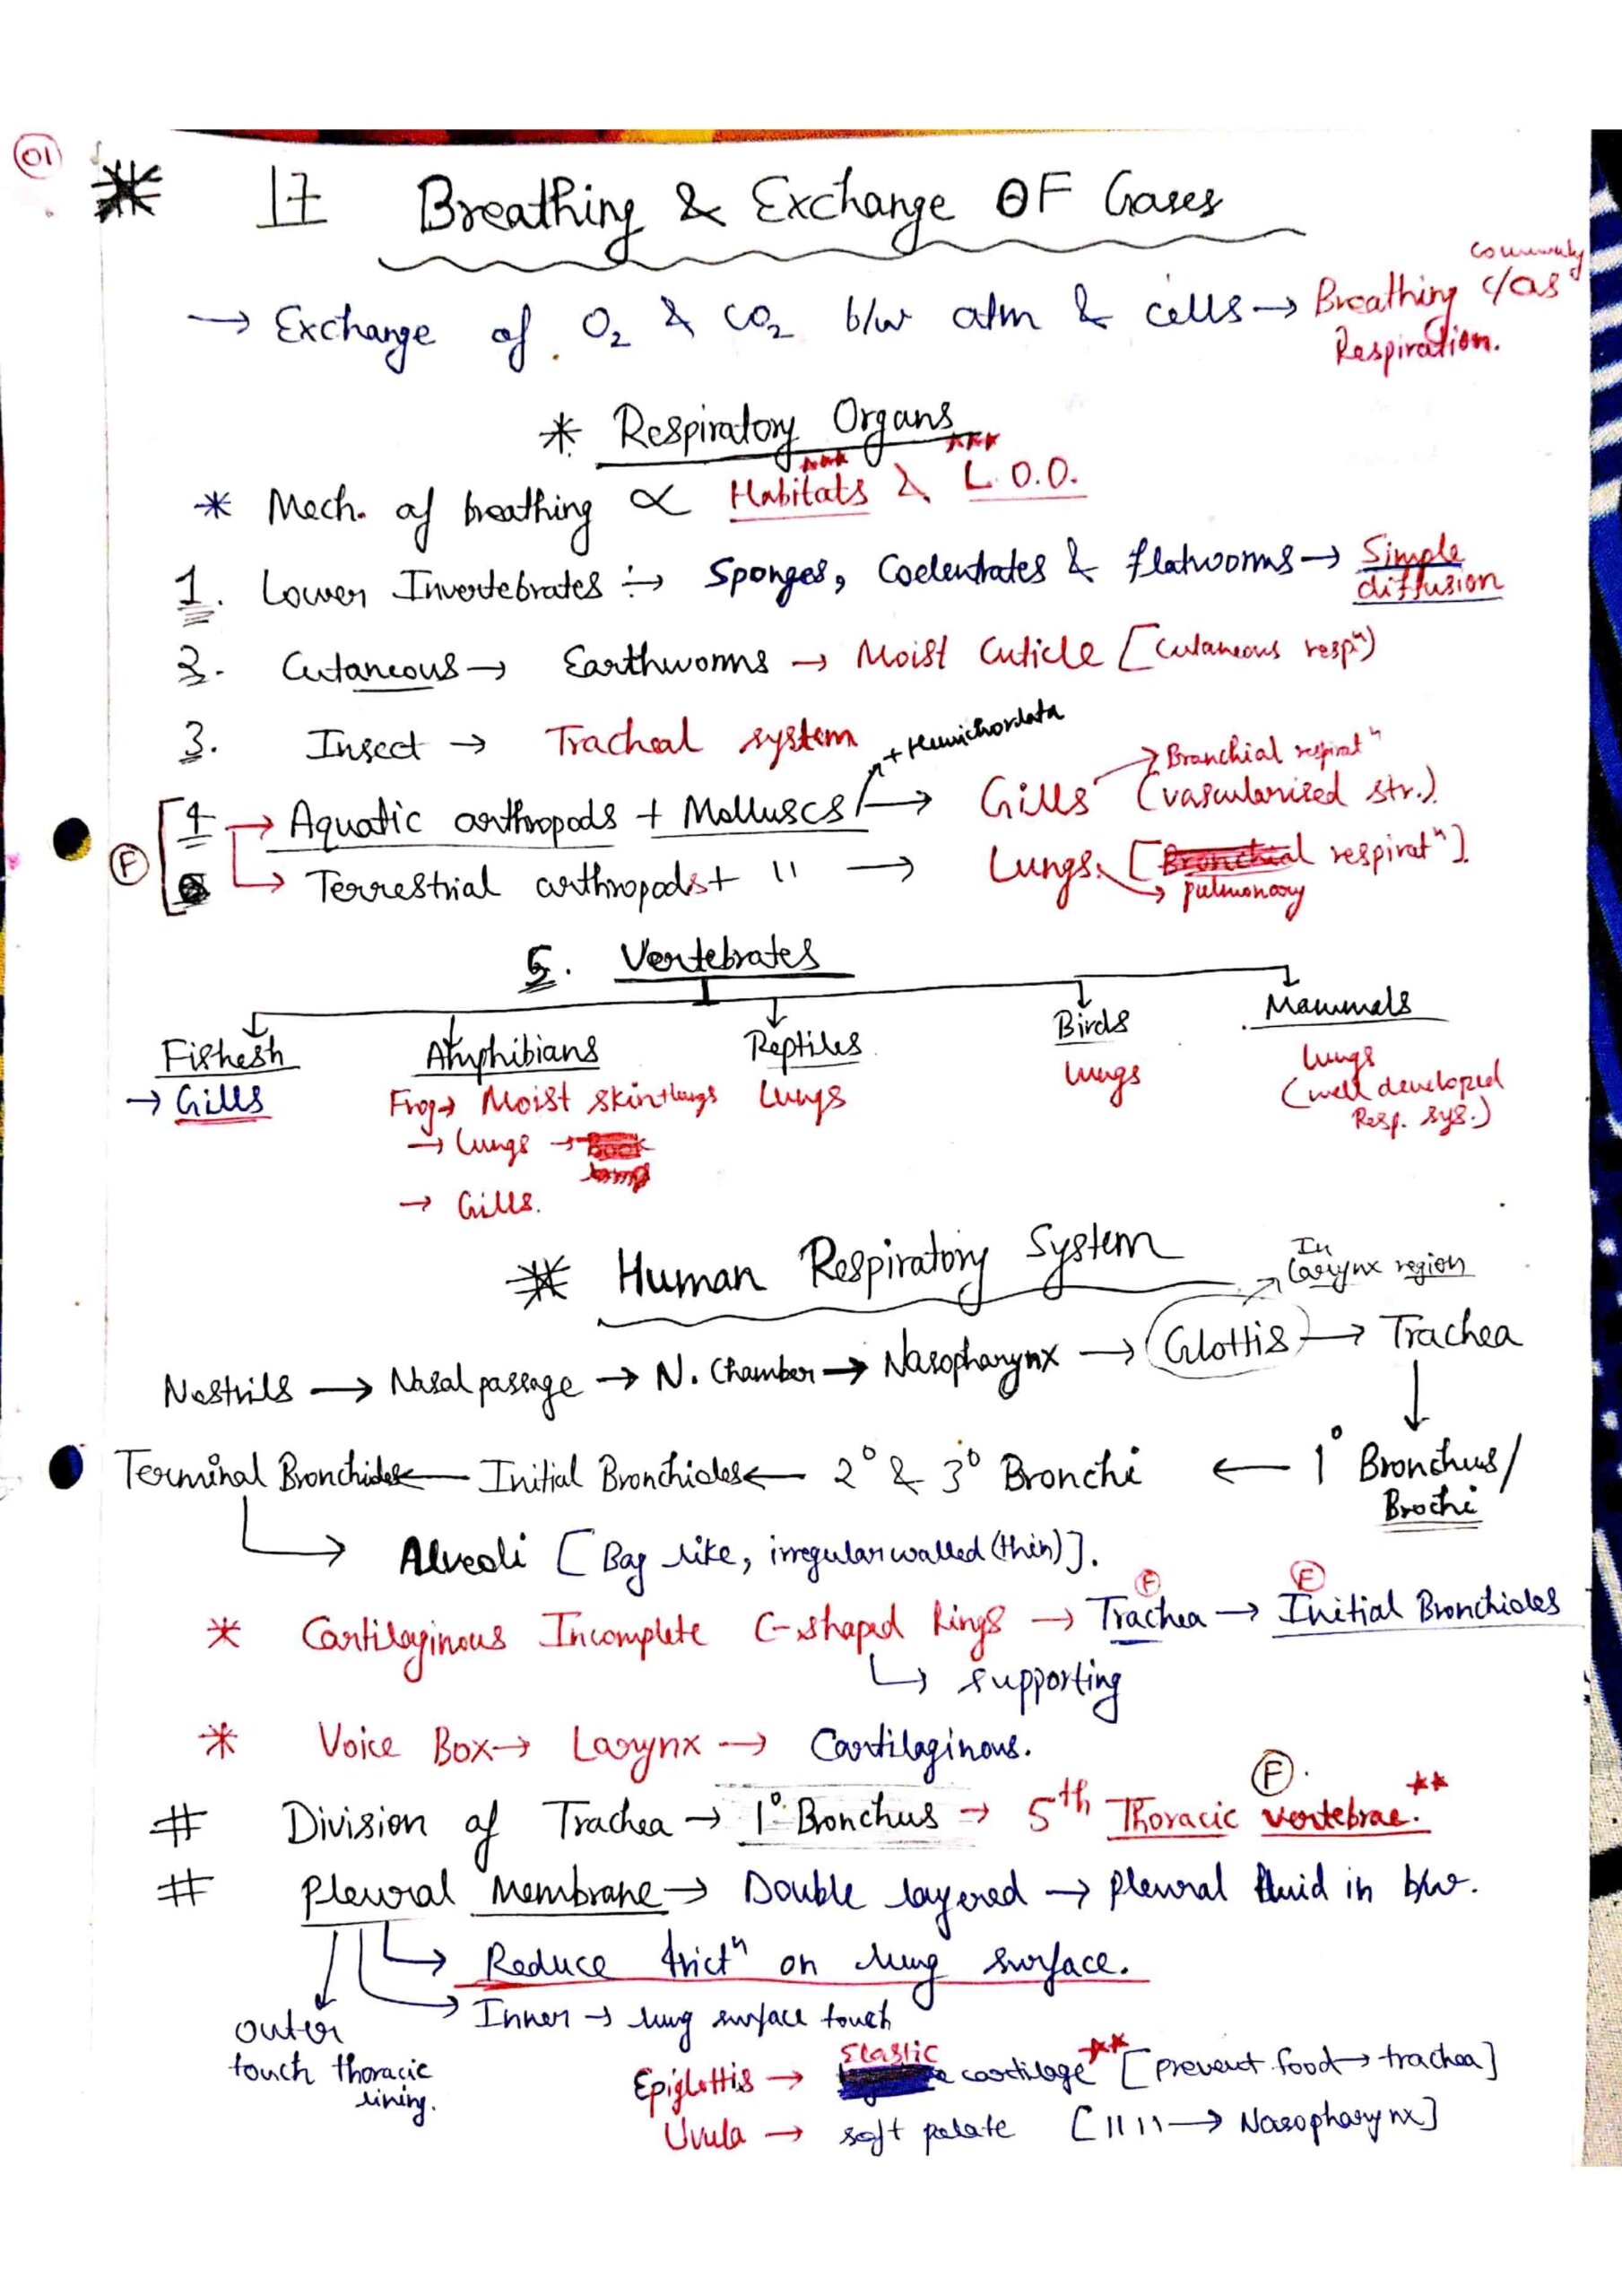 01
17 Breathing & Exchange OF Gases
→ Exchange of O₂ & CO₂ b/w atm & cells → Breathing c/as Respiration.
* Respiratory Organs
* Mech. of breathing ∝ Habitats & L.O.O.
1. Lower Invertebrates :→ Sponges, Coelentrates & flatworms → Simple diffusion
2. Cutaneous → Earthworms → Moist Cuticle [Cutaneous respⁿ)
3. Insect → Tracheal system
+ Hemichordata
→ Branchial respiratⁿ
4 → Aquatic arthropods + Molluscs → Gills (vascularised str.)
F
→ Terrestrial arthropods + 11 → Lungs. [respiratⁿ].
→ pulmonary
5. Vertebrates
Fishesh Amphibians Reptiles Birds Mammels
→ Gills Frog → Moist skin + lungs Lungs lungs lungs
(well developed Resp. sys.)
→ Lungs →
→ Gills.
* Human Respiratory System
In Larynx region
Nostrils → Nasal passage → N. Chamber → Nasopharynx → Glottis → Trachea
Terminal Bronchioles ← Initial Bronchioles ← 2° & 3° Bronchi ← 1° Bronchus/
Brochi
→ Alveoli [Bag like, irregular walled (thin)].
F F
* Cartilaginous Incomplete C-shaped Rings → Trachea → Initial Bronchioles
↳ supporting
* Voice Box → Larynx → Cartilaginous.
F
# Division of Trachea → 1° Bronchus → 5th Thoracic vertebrae.**
# Pleural Membrane → Double layered → Pleural fluid in b/w.
→ Reduce frictⁿ on lung surface.
→ Inner → lung surface touch
outer
touch thoracic
lining.
Epiglottis → Elastic cartilage** [prevent food → trachea]
Uvula → soft palate [11 11 → Nasopharynx]